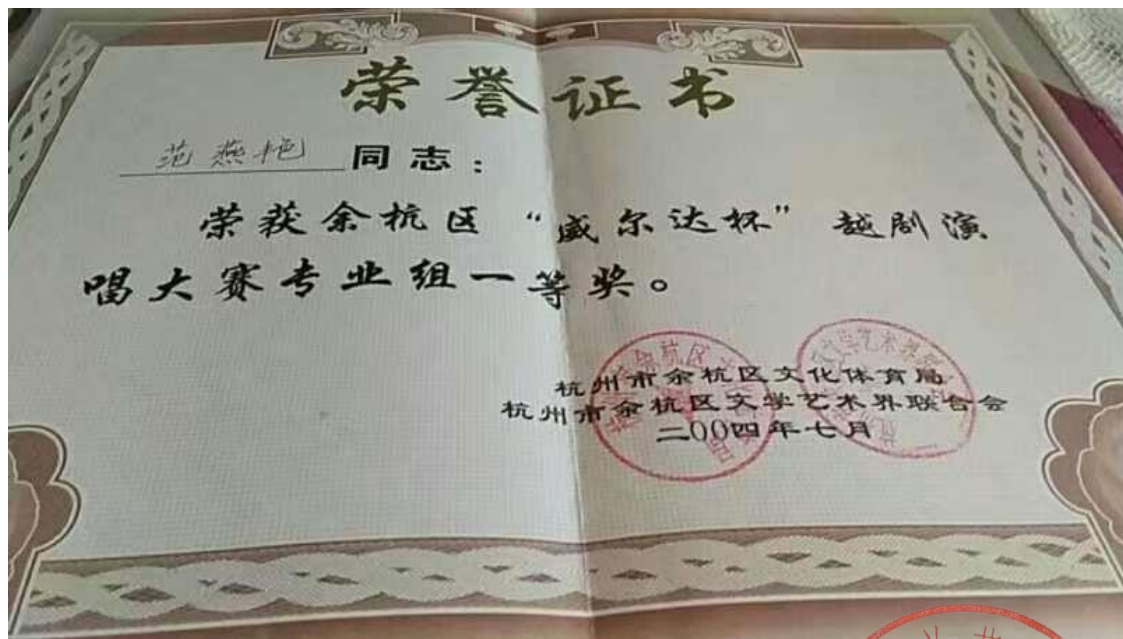 荣誉证书
范燕艳 同志：
荣获余杭区“威尔达杯”越剧演
唱大赛专业组一等奖。
杭州市余杭区文化体育局
杭州市余杭区文学艺术界联合会
二00四年七月